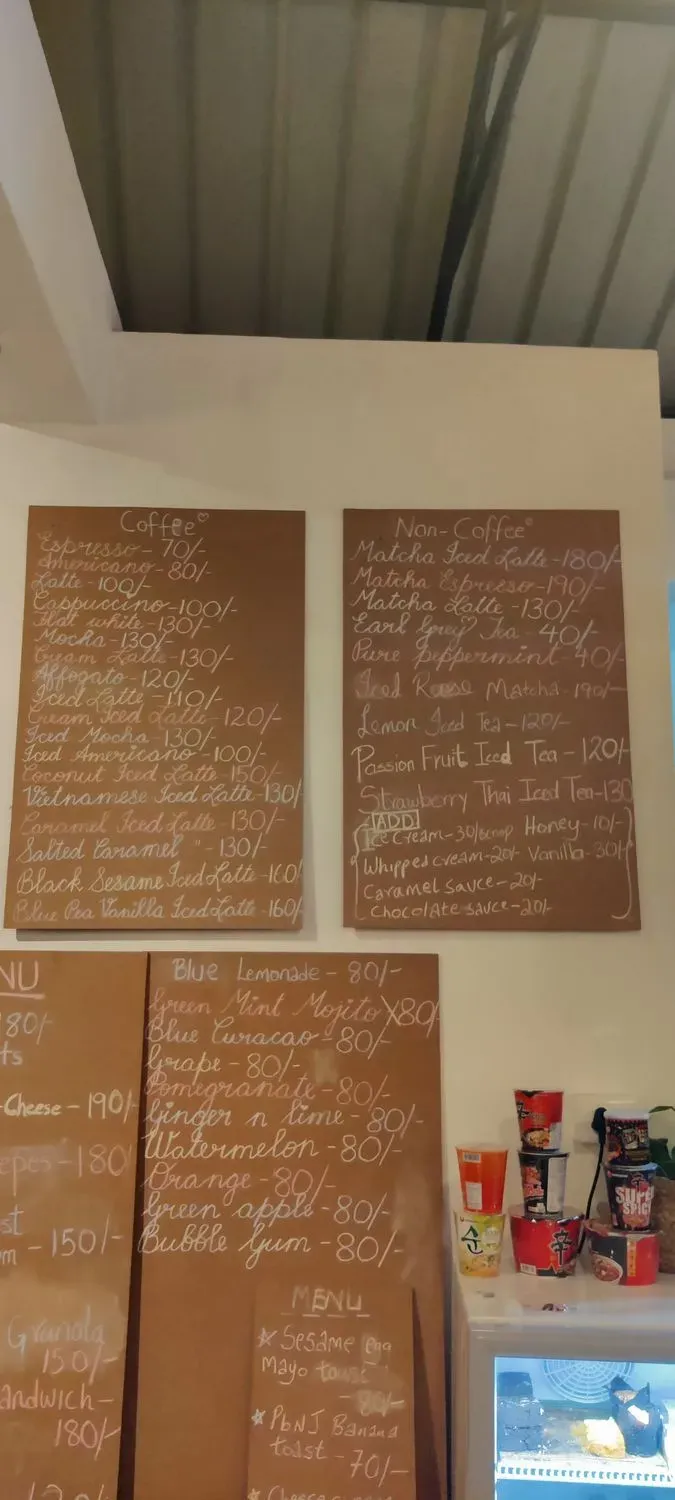 Coffee♡
Espresso - 70/-
Americano - 80/-
Latte - 100/-
Cappuccino - 100/-
Flat white - 130/-
Mocha - 130/-
Cream Latte - 130/-
Affogato - 120/-
Iced Latte - 110/-
Cream Iced Latte - 120/-
Iced Mocha - 130/-
Iced Americano - 100/-
Coconut Iced Latte - 150/-
Vietnamese Iced Latte - 130/-
Caramel Iced Latte - 130/-
Salted Caramel " - 130/-
Black Sesame Iced Latte - 160/
Blue Pea Vanilla Iced Latte - 160/-
Non-Coffee
Matcha Iced Latte - 180/-
Matcha Espresso - 190/-
Matcha Latte - 130/-
Earl Grey Tea - 40/-
Pure peppermint - 40/-
Iced Rose Matcha - 190/-
Lemon Iced Tea - 120/-
Passion Fruit Iced Tea - 120/-
Strawberry Thai Iced Tea - 130
ADD
Ice cream - 30/scoop Honey - 10/-
Whipped cream - 20/- Vanilla - 30/-
Caramel sauce - 20/-
Chocolate sauce - 20/-
NU
80/-
ts
-Cheese - 190/-
epes - 180
st
m - 150/-
Granola
150/-
andwich -
180/-
Blue Lemonade - 80/-
Green Mint Mojito 80/-
Blue Curacao - 80/-
Grape - 80/-
Pomegranate - 80/-
Ginger n lime - 80/-
Watermelon - 80/-
Orange - 80/-
Green apple - 80/-
Bubble Gum - 80/-
MENU
Sesame egg
Mayo toast
- 80/-
PbNJ Banana
toast -
70/-
辛
SUPER
SPICY
순
辛